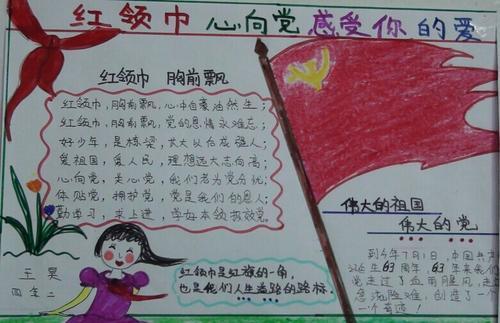 红领巾 心向党 感受你的爱
红领巾 胸前飘
红领巾,胸前飘,心中自豪油然生;
红领巾,胸前飘,党的恩情永难忘;
好少年,是栋梁,
爱祖国,爱人民,理想远大志向高;
心向党,关心党,我们者为党分忧;
体贴党,拥护党,党是我们的恩人;
勤学习,求上进,学好本领报效党。
王昊
四年二
红领巾是红旗的一角,
也是我们人生道路的路标。
伟大的祖国
伟大的党
到今年7月1日,中国共产
生63周年,63年来
党走过了血雨腥风,走
一个奇迹!